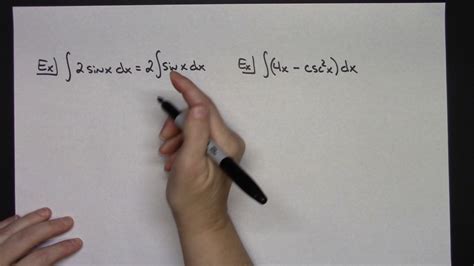 Ex] ∫ 2 sinx dx = 2∫ sin x dx
Ex] ∫(4x - csc²x) dx